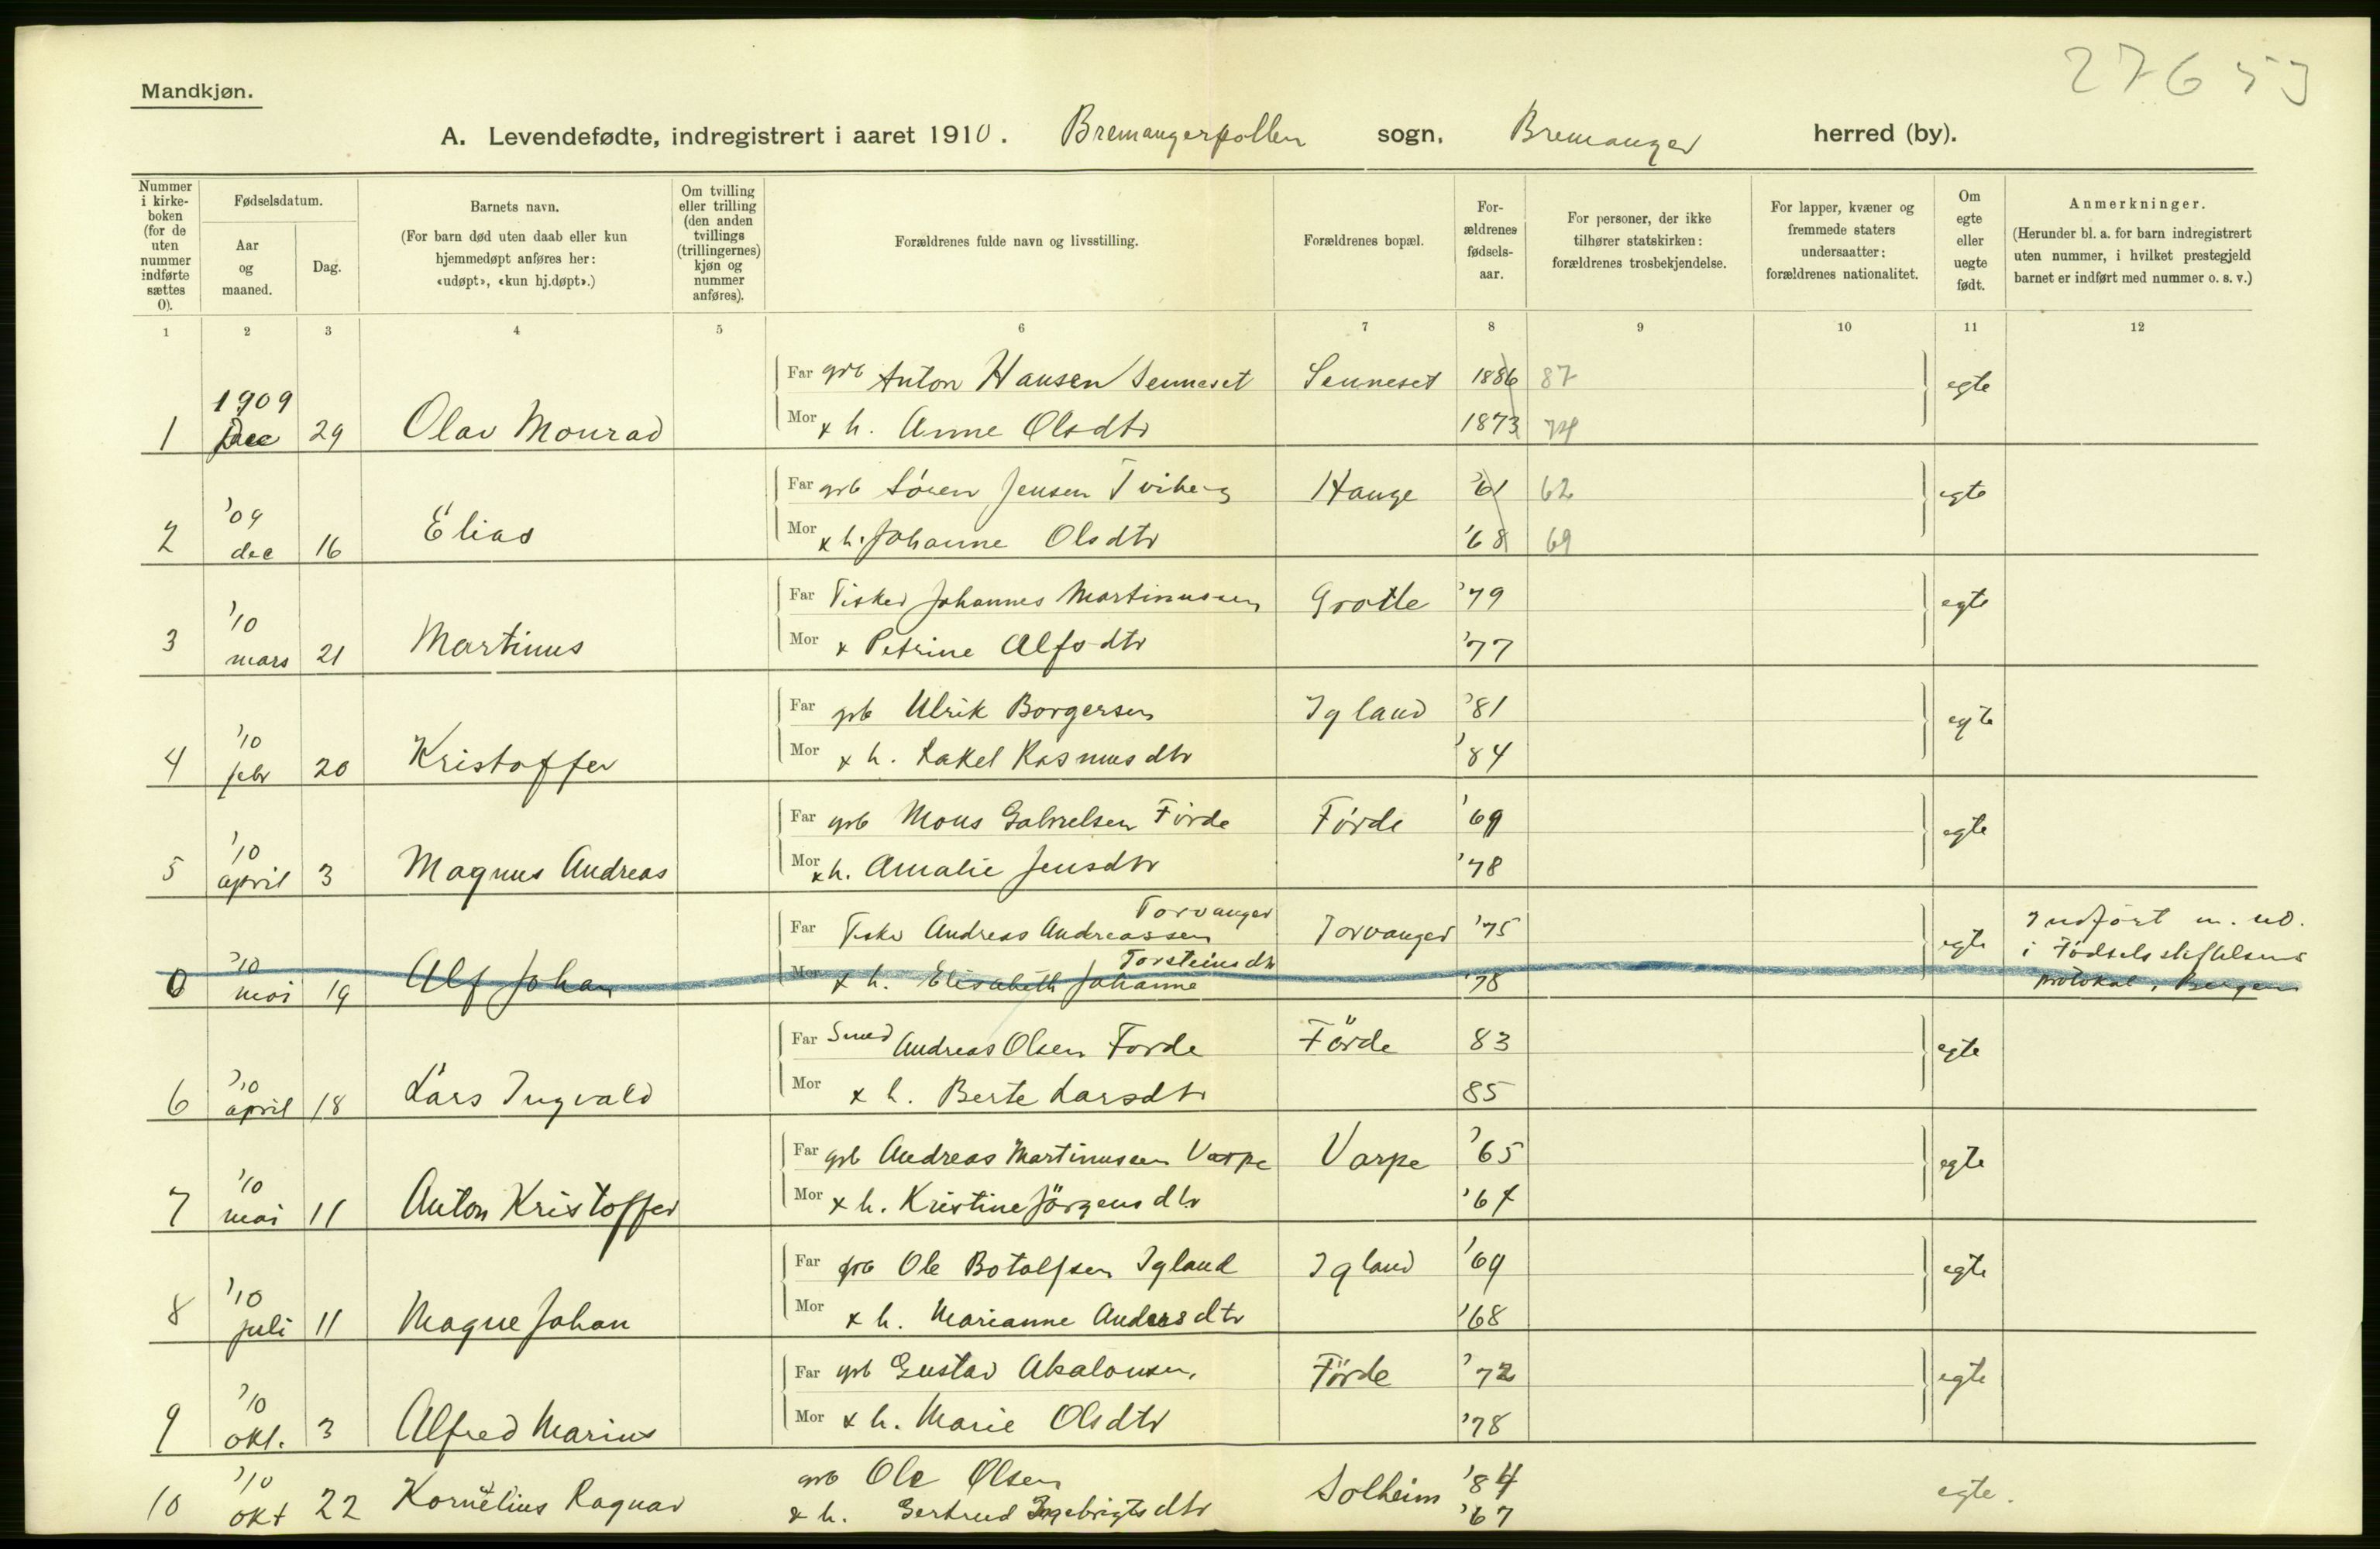 27653
Mandkjøn.
A. Levendefødte, indregistrert i aaret 1910. Bremangerpollen sogn, Bremanger herred (by).
Nummer i kirke-boken (for de uten nummer indførte sættes 0).
Fødselsdatum.
Aar og maaned.
Dag.
Barnets navn.
(For barn død uten daab eller kun hjemmedøpt anføres her: «udøpt», «kun hj.døpt».)
Om tvilling eller trilling (den anden tvillings (trillingernes) kjøn og nummer anføres).
Forældrenes fulde navn og livsstilling.
Forældrenes bopæl.
For-ældrenes fødsels-aar.
For personer, der ikke tilhører statskirken: forældrenes trosbekjendelse.
For lapper, kvæner og fremmede staters undersaatter: forældrenes nationalitet.
Om egte eller uegte født.
Anmerkninger.
(Herunder bl. a. for barn indregistrert uten nummer, i hvilket prestegjeld barnet er indført med nummer o. s. v.)
1 2 3 4 5 6 7 8 9 10 11 12
Far grb Anton Hansen Senneset Senneset 1886 87 egte
1 1909 Dec 29 Olav Monrad Mor x h. Anne Olsdtr 1873 74
Far grb Sören Jensen Tviberg Hauge '61 62 egte
2 '09 dec 16 Elias Mor x h. Johanne Olsdtr '68 69
Far Fisker Johannes Martinussen Grotle '79 egte
3 '10 mars 21 Martinus Mor x Petrine Alfsdtr '77
Far grb Ulrik Borgersen Igland '81 egte
4 '10 febr 20 Kristoffer Mor x h. Rakel Rasmusdtr '84
Far grb Mons Gabrielsen Förde Förde '69 egte
5 '10 april 3 Magnus Andreas Mor x h. Amalie Jensdtr '78
Far Fisker Andreas Andreassen Torvanger Torvanger '75 egte Indført m. no.
0 '10 mai 19 Alf Johan Mor x h. Elisabeth Johanne Torsteinsdtr '78 i Födselsstiftelsens
protokol, Bergen
Far Smed Andreas Olsen Förde Förde 83 egte
6 '10 april 18 Lars Ingvald Mor x h. Berte Larsdtr 85
Far grb Andreas Martinussen Varpe Varpe '65 egte
7 '10 mai 11 Anton Kristoffer Mor x h. Kristine Jörgensdtr '67
Far grb Ole Botolfsen Igland Igland '69 egte
8 '10 juli 11 Magne Johan Mor x h. Marianne Andersdtr '68
Far grb Gustav Absalonsen. Förde '72 egte
9 '10 okt. 3 Alfred Marius Mor x h. Marie Olsdtr '78
grb Ole Olsen Solheim '84 egte.
10 '10 okt 22 Kornelius Ragnar x h. Gertrud Ingebrigtsdtr '67